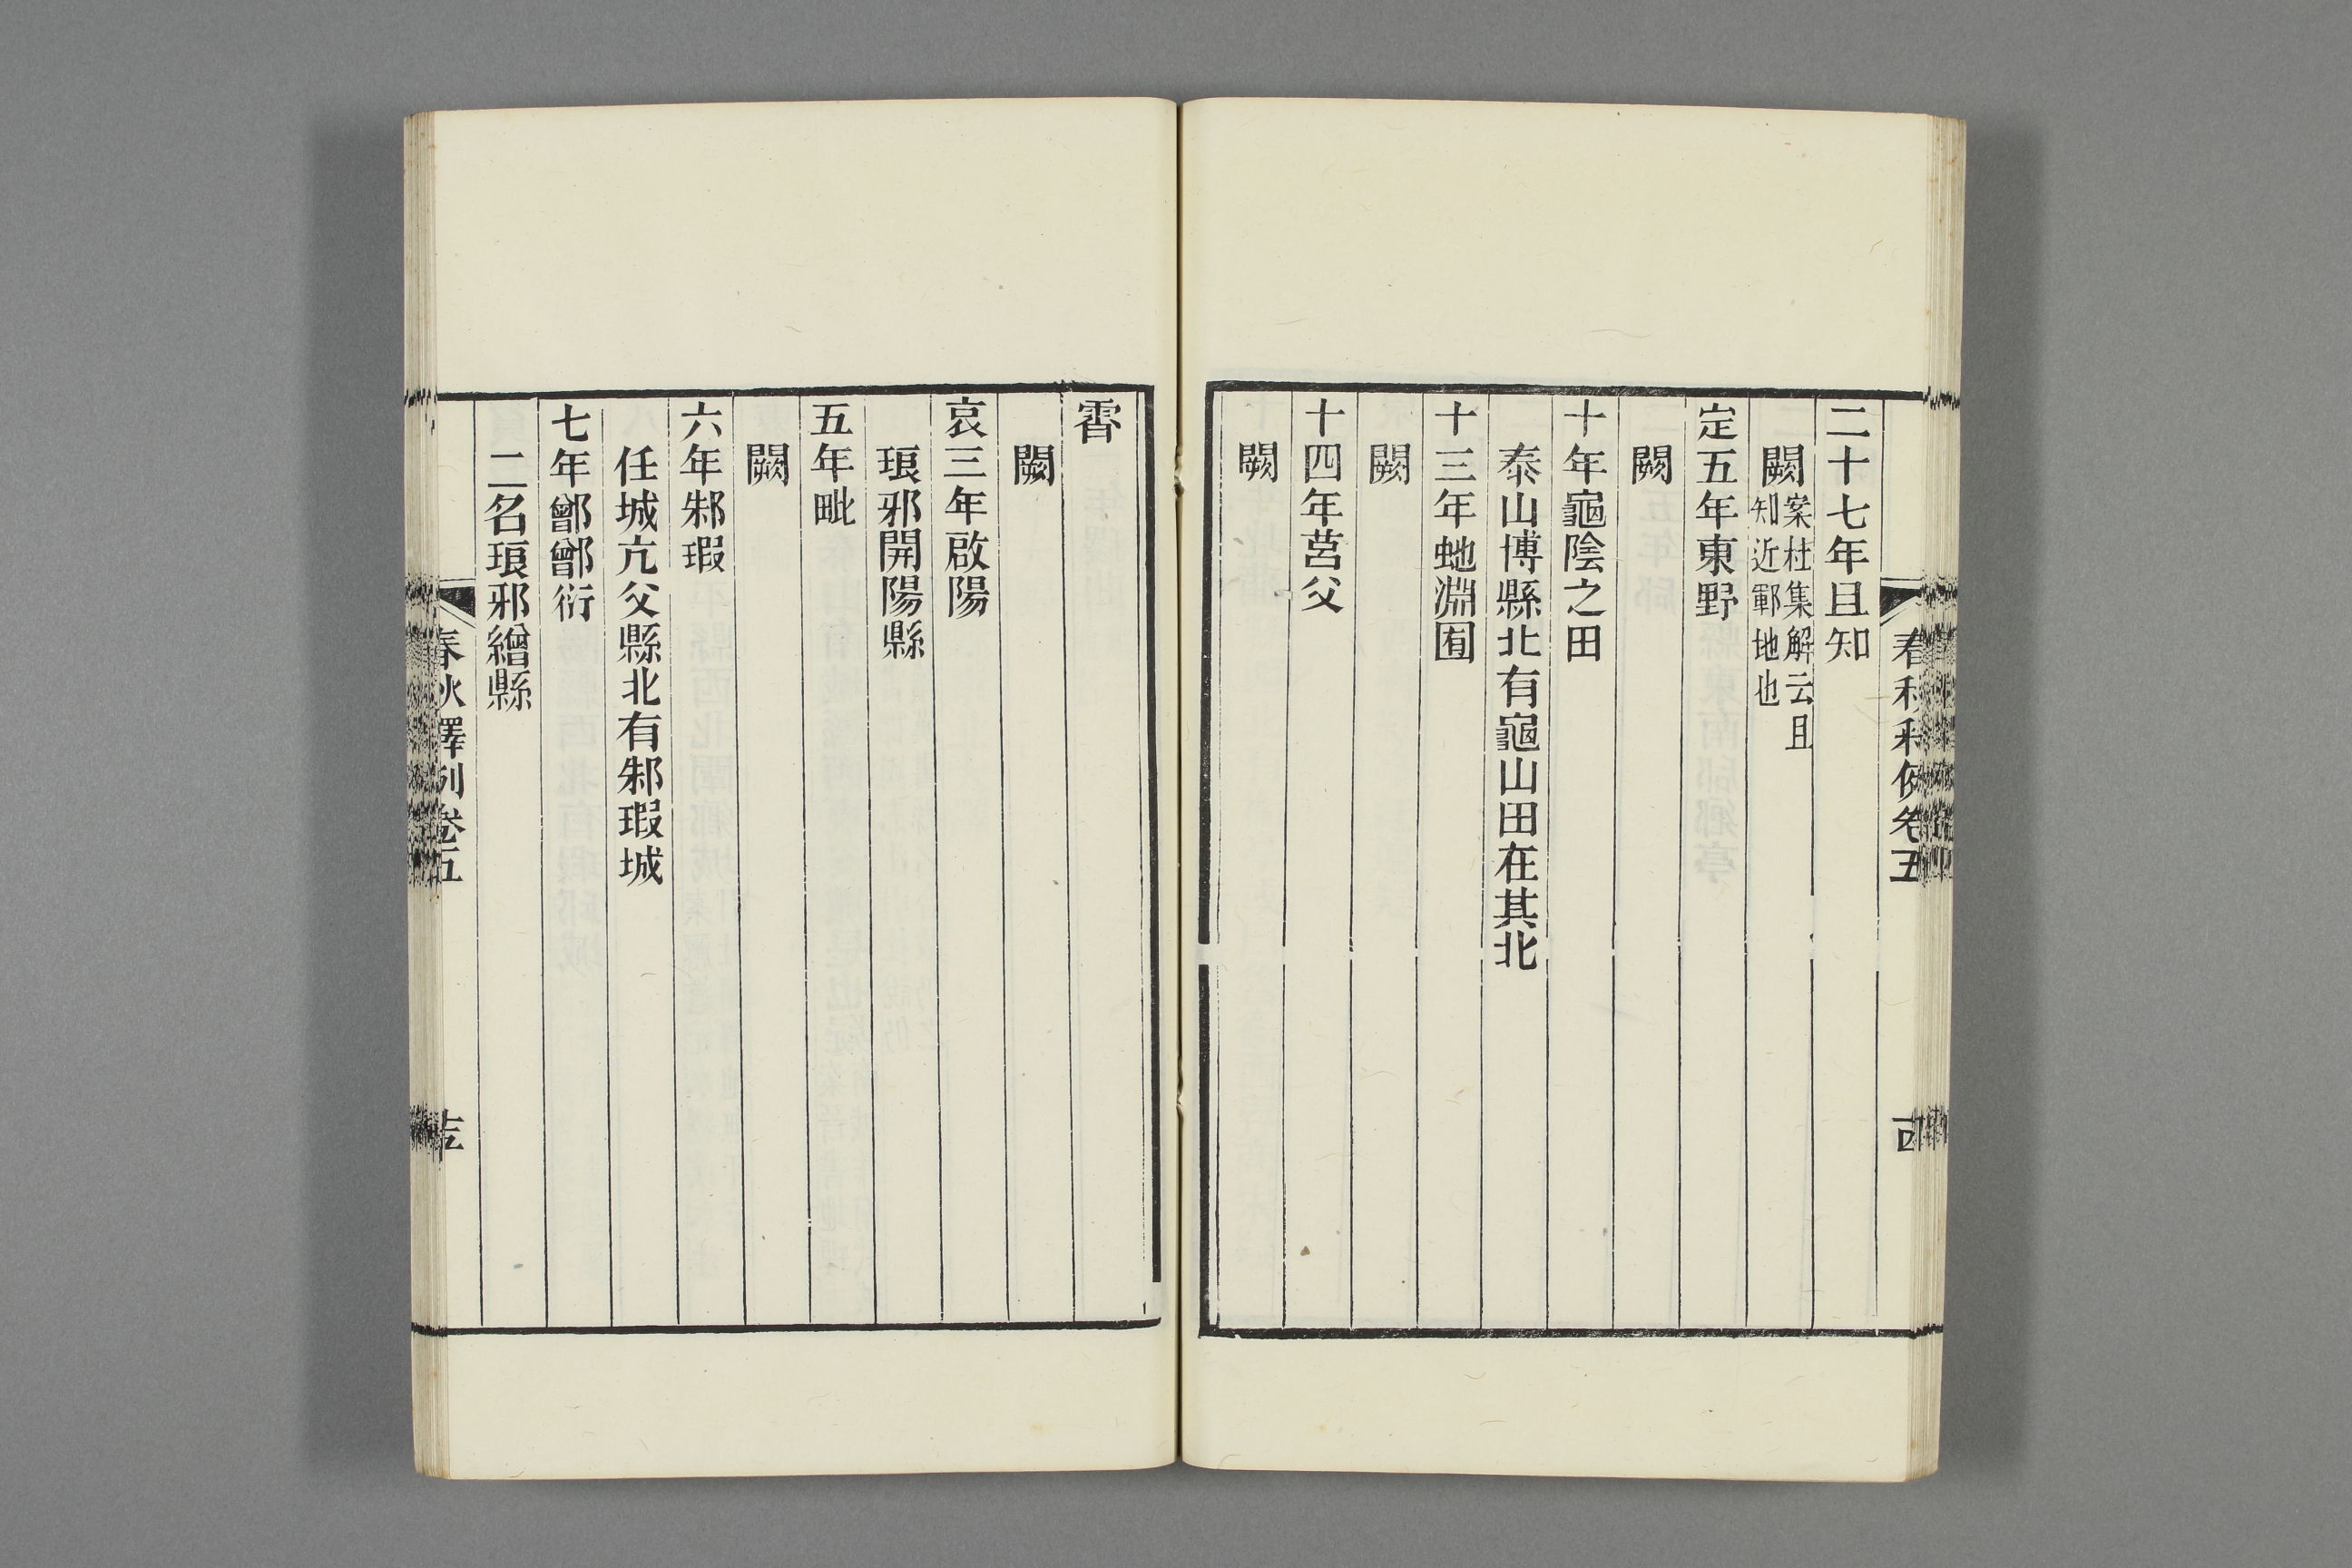 二十七年且知
闕案杜集解云且知近鄆地也
定五年東野
闕
十年龜陰之田
泰山博縣北有龜山田在其北
十三年虵淵囿
闕
十四年莒父
闕
霄
闕
哀三年啟陽
琅邪開陽縣
五年毗
闕
六年邾瑕
任城亢父縣北有邾瑕城
七年鄫鄫衍
二名琅邪繒縣
春秋釋例卷五